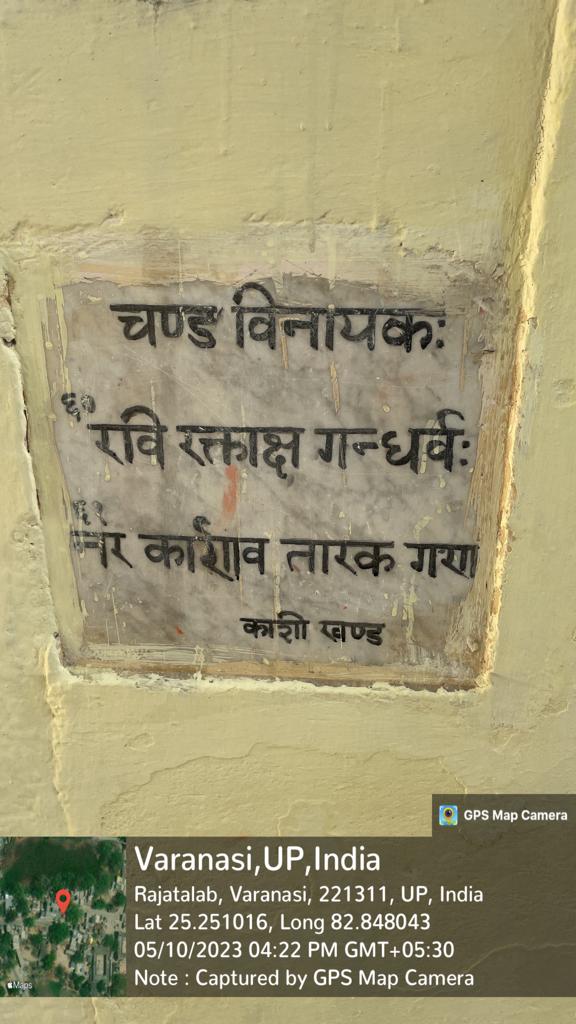 चण्ड विनायकः
६०
रवि रक्ताक्ष गन्धर्वः
६१
नर कार्णाव तारक गण
काशी खण्ड
GPS Map Camera
Varanasi,UP,India
Rajatalab, Varanasi, 221311, UP, India
Lat 25.251016, Long 82.848043
05/10/2023 04:22 PM GMT+05:30
Note : Captured by GPS Map Camera
Maps